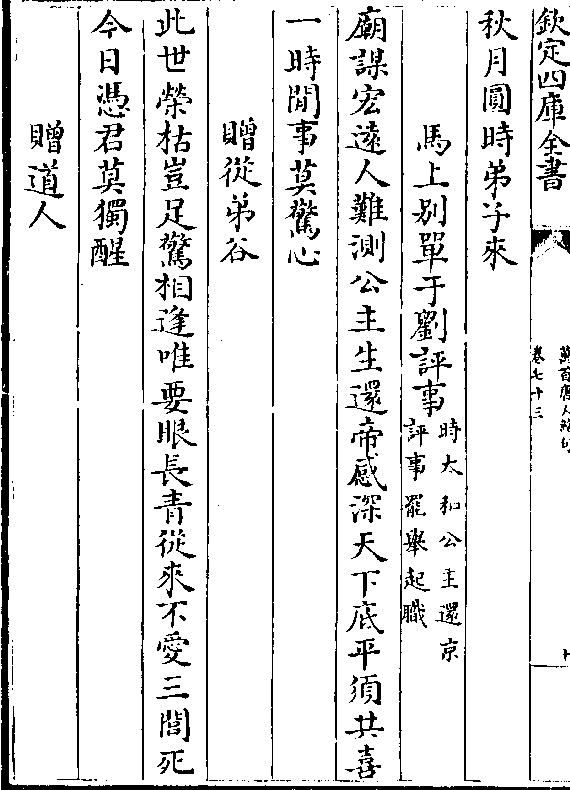 欽定四庫全書
萬首唐人絶句
卷七十三
秋月圓時弟子來
馬上别單于劉評事
時太和公主還京
評事罷舉起職
廟謀宏遠人難測公主生還帝感深天下底平須共喜
一時閒事莫驚心
贈從弟谷
此世榮枯豈足驚相逢唯要眼長青從來不愛三閭死
今日憑君莫獨醒
贈道人